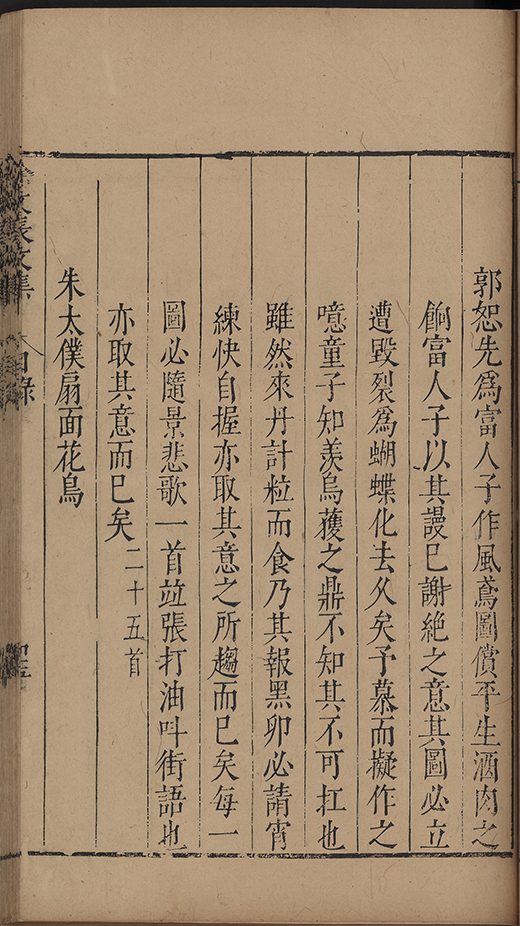 郭恕先爲富人子作風鳶圖償平生酒肉之
餉富人子以其謾已謝絕之意其圖必立
遭毀裂爲蝴蝶化去久矣予慕而擬作之
噫童子知羨烏獲之鼎不知其不可扛也
雖然來丹計粒而食乃其報黑卵必請宵
練快自握亦取其意之所趨而已矣每一
圖必隨景悲歌一首竝張打油叫街語也
亦取其意而已矣二十五首
朱太僕扇面花鳥
文長文集
目錄